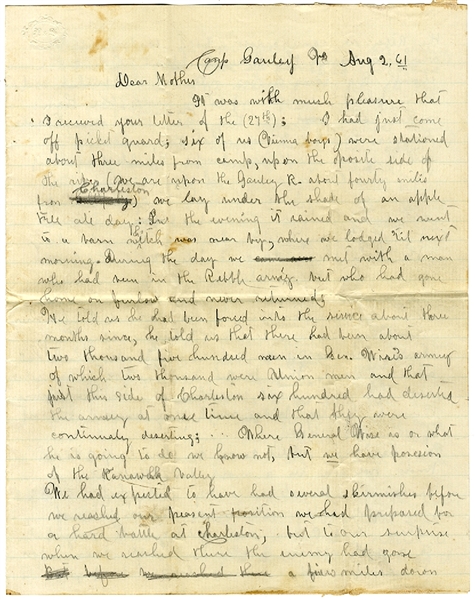 Camp Gauley Va Aug 2, 61
Dear Mother
It was with much pleasure that
I received your letter of the (27th); I had just come
off picket guard; six of us (Vienna boys) were stationed
about three miles from camp, upon the oposite side of
the river (we are upon the Gauley R. about fourty miles
from Charleston) we lay under the shade of an apple
tree all day; But the evening it rained and we went
to a barn witch was near by, where we lodged 'til next
morning. During the day we met with a man
who had been in the Rebbh army. but who had gone
home on furlow and never returned;
We told us he had been forced into the service about three
months since, he told us that there had been about
two thousand five hundred men in Gen. Wise's army
of which two thousand were Union men and that
just this side of Charleston six hundred had deserted
the army at once time and that they were
continualy deserting; . . . Where General Wise is or what
he is going to do we know not, but we have posesion
of the Kanawah Valley
We had expected to have had several skirmishes before
we reached our present position we had prepared for
a hard battle at Charleston, but to our surprise
when we reached there the enemy had gone
But before we reached there a few miles down